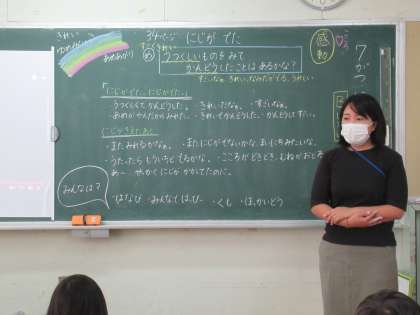 きれい
ゆめ
あめあがり
34ページ にじが でた
すごくきれい
め うつくしいものを みて
かんどうしたことは あるかな？
すごいなあ。きれい。なみだがでる。うれしい
感動
こころ
7がつ
「にじがでた。にじがでた。」
・うつくしくて かんどうした。・きれいだなあ。・すごいなあ。
・あめが やんだから みせた。・きれいで かんどうした。かんどうは すごい。
にじがきえたあと
・また みれるかなあ。・また にじが でないかな。まいにち みたいな。
・うたったら もういちど でるかな。・こころが どきどき、むねが
あー せっかく にじが かがてたのに。
みんなは？
はなび ・みんなで はっぴー ・くも ・ほっかいどう